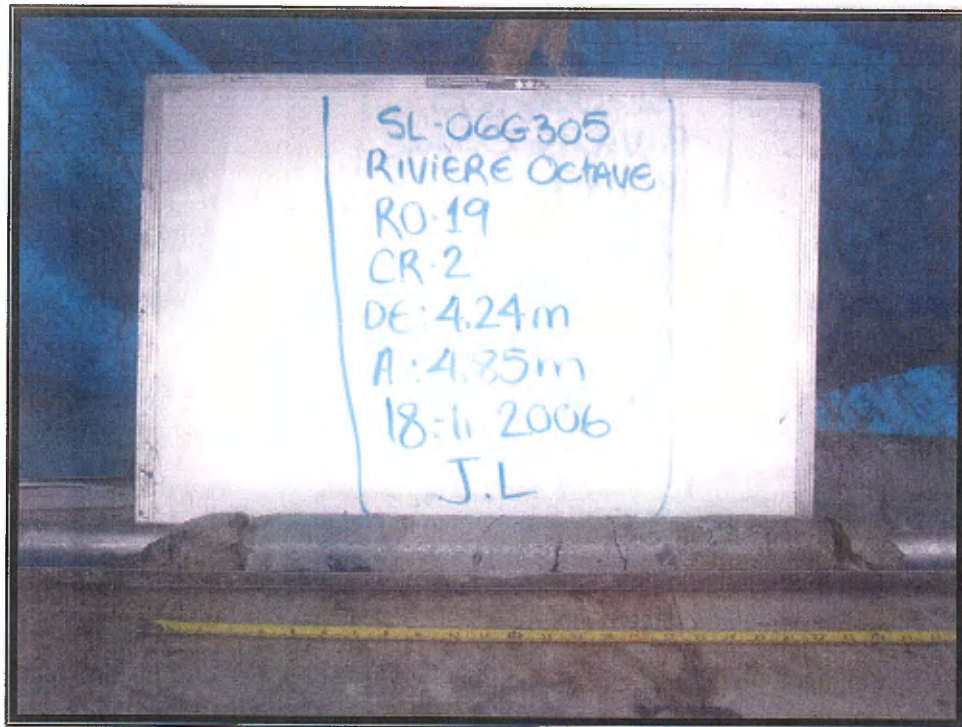 SL-06G305
RIVIÈRE OCTAVE
RO-19
CR-2
DE: 4.24m
A: 4.85m
18-11 2006
J.L